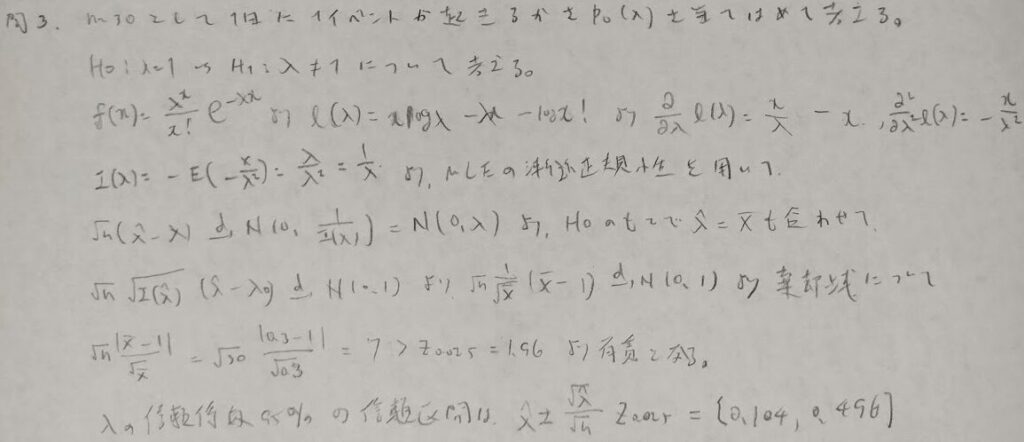 問3. n=30として1日に1イベントが起きるかをPo(λ)を当てはめて考える。
H0:λ=1 vs H1:λ≠1について考える。
f(x)= λ^x/x! e^{-λx} より l(λ)=x log λ - λx - log x! より ∂/∂λ l(λ)= x/λ - x., ∂²/∂λ² l(λ)= - x/λ²
I(λ)= - E(-x/λ²)= λ/λ² = 1/λ. より, MLEの漸近正規性を用いて.
√n(λ̂-λ) →d N(0, 1/I(λ)) = N(0,λ) より, H0のもとで λ̂=X̄ も合わせて.
√n √I(λ̂) (λ̂-λ0) →d N(0,1) より √n 1/√X̄ (X̄-1) →d N(0,1) より 棄却域について
√n |X̄-1|/√X̄ = √30 |0.3-1|/√0.3 = 7 > Z0.025 = 1.96 より有意となる。
λの信頼係数95%の信頼区間は. λ̂± √λ̂/√n Z0.025 = [0.104, 0.496]